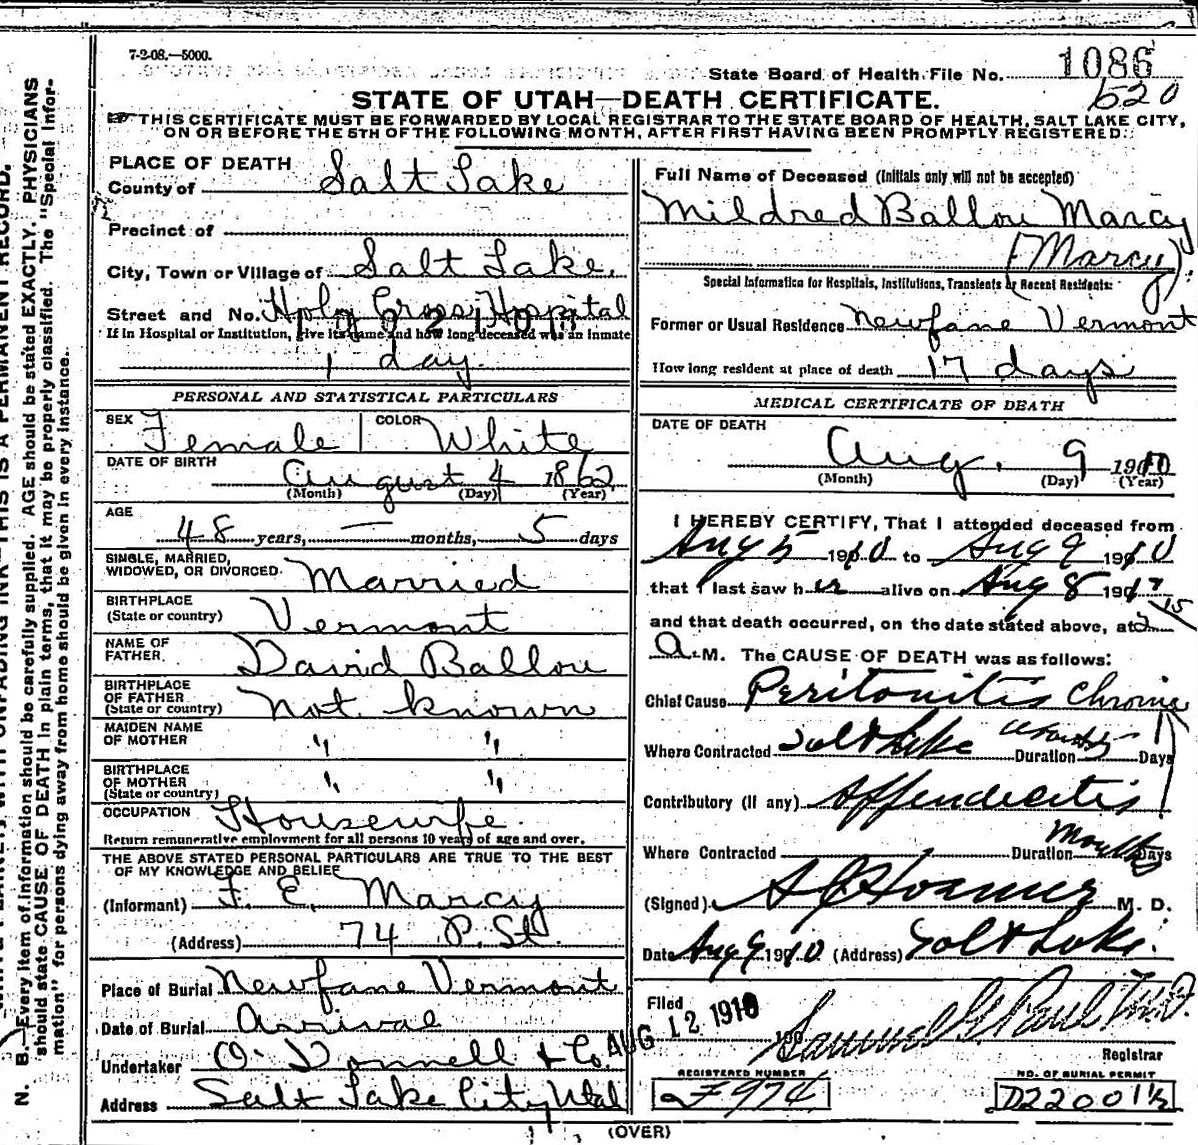 7-2-08.—5000.
State Board of Health File No. 1086
520
STATE OF UTAH—DEATH CERTIFICATE.
THIS CERTIFICATE MUST BE FORWARDED BY LOCAL REGISTRAR TO THE STATE BOARD OF HEALTH, SALT LAKE CITY,
ON OR BEFORE THE 5TH OF THE FOLLOWING MONTH, AFTER FIRST HAVING BEEN PROMPTLY REGISTERED:
PLACE OF DEATH
County of Salt Lake
Precinct of
City, Town or Village of Salt Lake.
Street and No. Holy Cross Hospital
If in Hospital or Institution, give its name and how long deceased was an inmate
1 day.
PERSONAL AND STATISTICAL PARTICULARS
SEX Female COLOR White
DATE OF BIRTH
August 4 1862
(Month) (Day) (Year)
AGE
48 years, — months, 5 days
SINGLE, MARRIED,
WIDOWED, OR DIVORCED Married
BIRTHPLACE
(State or country) Vermont
NAME OF
FATHER David Ballou
BIRTHPLACE
OF FATHER
(State or country) not known
MAIDEN NAME
OF MOTHER " "
BIRTHPLACE
OF MOTHER
(State or country) " "
OCCUPATION Housewife.
Return remunerative employment for all persons 10 years of age and over.
THE ABOVE STATED PERSONAL PARTICULARS ARE TRUE TO THE BEST
OF MY KNOWLEDGE AND BELIEF
(Informant) F. E. Marcy
(Address) 74 P. St.
Place of Burial Newfane Vermont
Date of Burial Arrival
Undertaker O'Donnell & Co.
Address Salt Lake City Utah
Full Name of Deceased (Initials only will not be accepted)
Mildred Ballou Marcy
(Marcy)
Special Information for Hospitals, Institutions, Transients or Recent Residents:
Former or Usual Residence Newfane Vermont
How long resident at place of death 17 days
MEDICAL CERTIFICATE OF DEATH
DATE OF DEATH
Aug. 9 1910
(Month) (Day) (Year)
I HEREBY CERTIFY, That I attended deceased from
Aug 5 1910 to Aug 9 1910
that I last saw her alive on Aug 8 191
and that death occurred, on the date stated above, at 2 15
A. M. The CAUSE OF DEATH was as follows:
Chief Cause Peritonitis Chronic
Where Contracted Salt Lake Duration Days
Contributory (if any) Appendicitis
Where Contracted Duration Months Days
(Signed) M. D.
Date Aug 9 1910 (Address) Salt Lake.
Filed AUG 12 1910 190
Samuel G. Paul M.D.
Registrar
REGISTERED NUMBER
F974
NO. OF BURIAL PERMIT
D22001½
(OVER)
N. B.—Every item of information should be carefully supplied. AGE should be stated EXACTLY. PHYSICIANS
should state CAUSE OF DEATH in plain terms, that it may be properly classified. The "Special Infor-
mation" for persons dying away from home should be given in every instance.